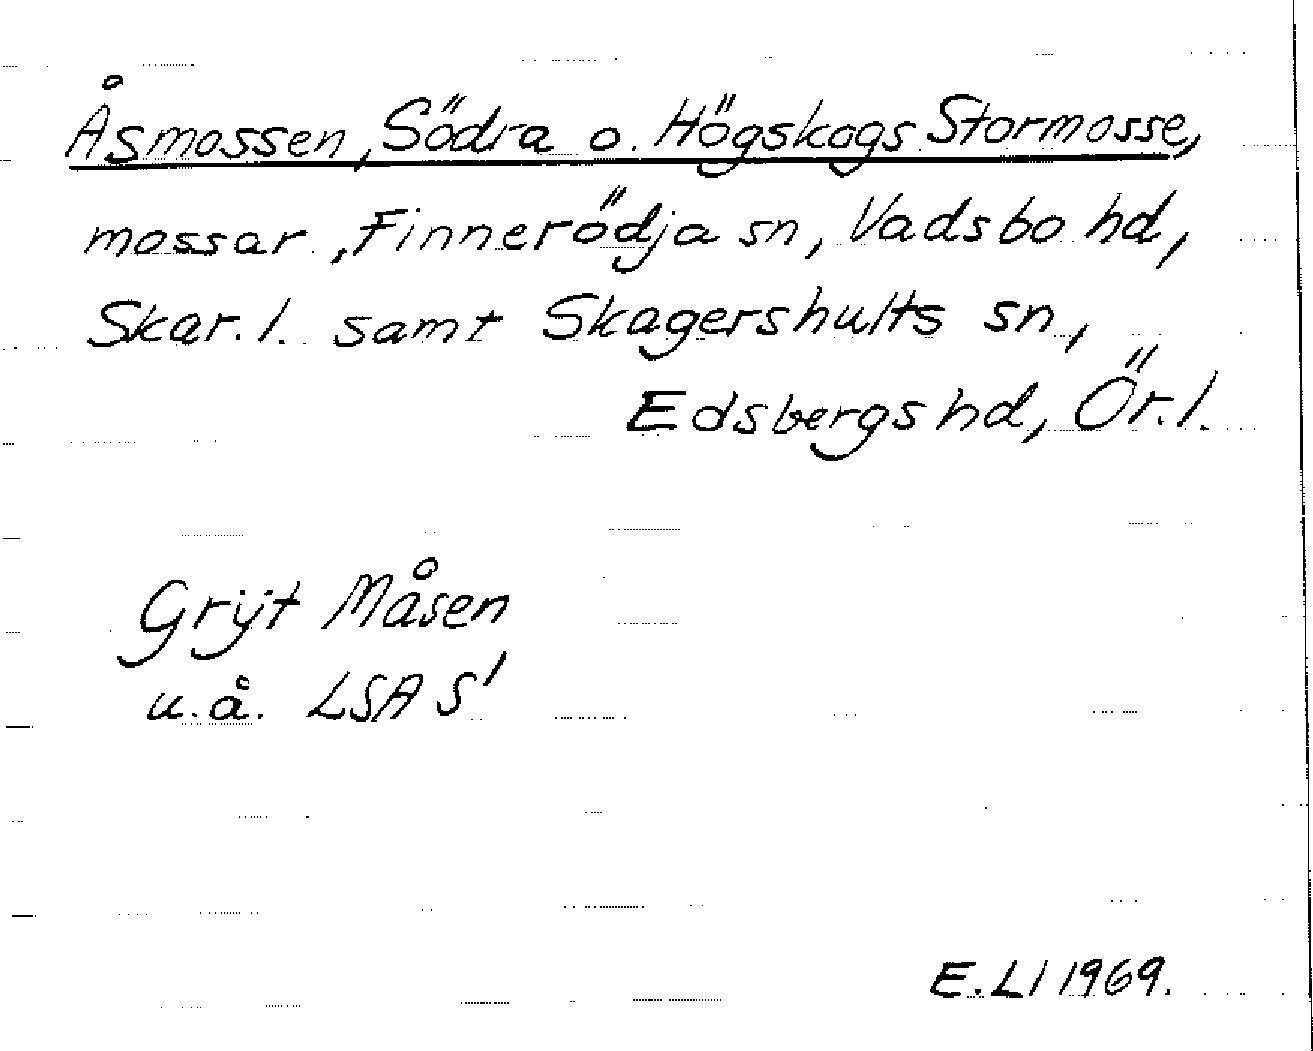 Åsmossen, Södra o. Högskogs Stormosse,
mossar, Finnerödja sn, Vadsbo hd,
Skar. l. samt Skagershults sn,
Edsbergs hd, Ör. l.
Grÿt Måsen
u.å. LSA S'
E. Ll 1969.